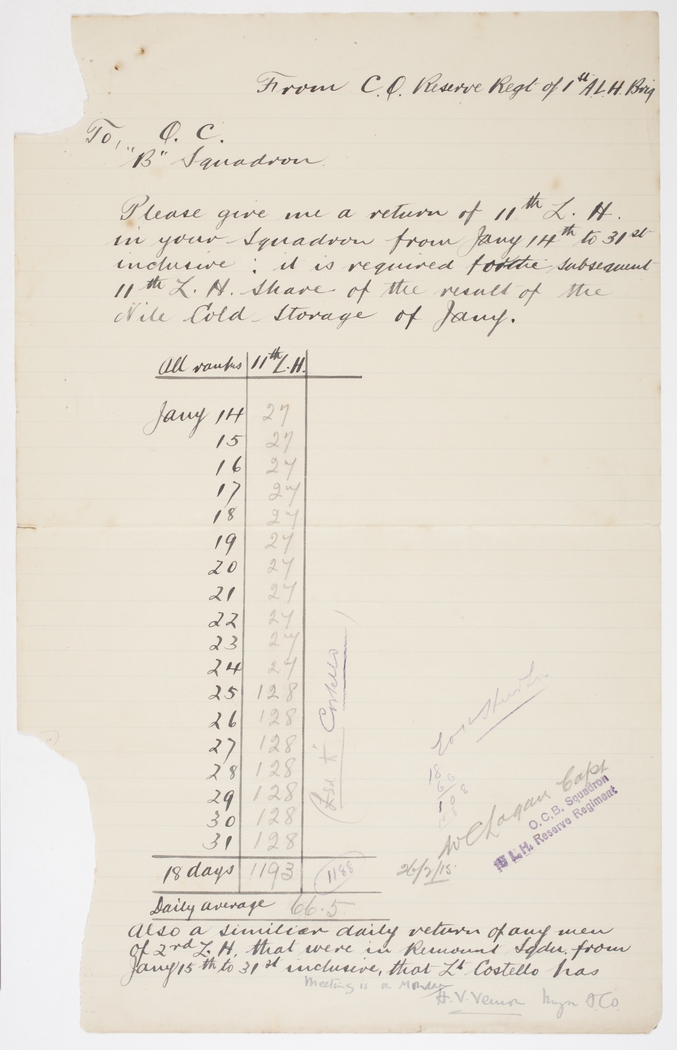 From C.O. Reserve Regt of 1st A.L.H. Brig
To, O. C.
"B" Squadron
Please give me a return of 11th L. H.
in your Squadron from Jany 14th to 31st
inclusive: it is required for the subsequent
11th L. H. share of the result of the
Nile Cold Storage of Jany.
All ranks 11th L.H.
Jany 14 27
15 27
16 27
17 27
18 27
19 27
20 27
21 27
22 27
23 27
24 27
25 128
26 128
27 128
28 128
29 128
30 128
31 128
18 days 1193 1188
Daily average 66.5
Costello
18
66
108
Capt
O.C.B. Squadron
L.H. Reserve Regiment
26/2/15
Also a similiar daily return of any men
of 2nd L.H. that were in Remount Sqdn. from
Jany 15th to 31st inclusive, that Lt Costello has
Meeting is a Monday
H.V. Vernon